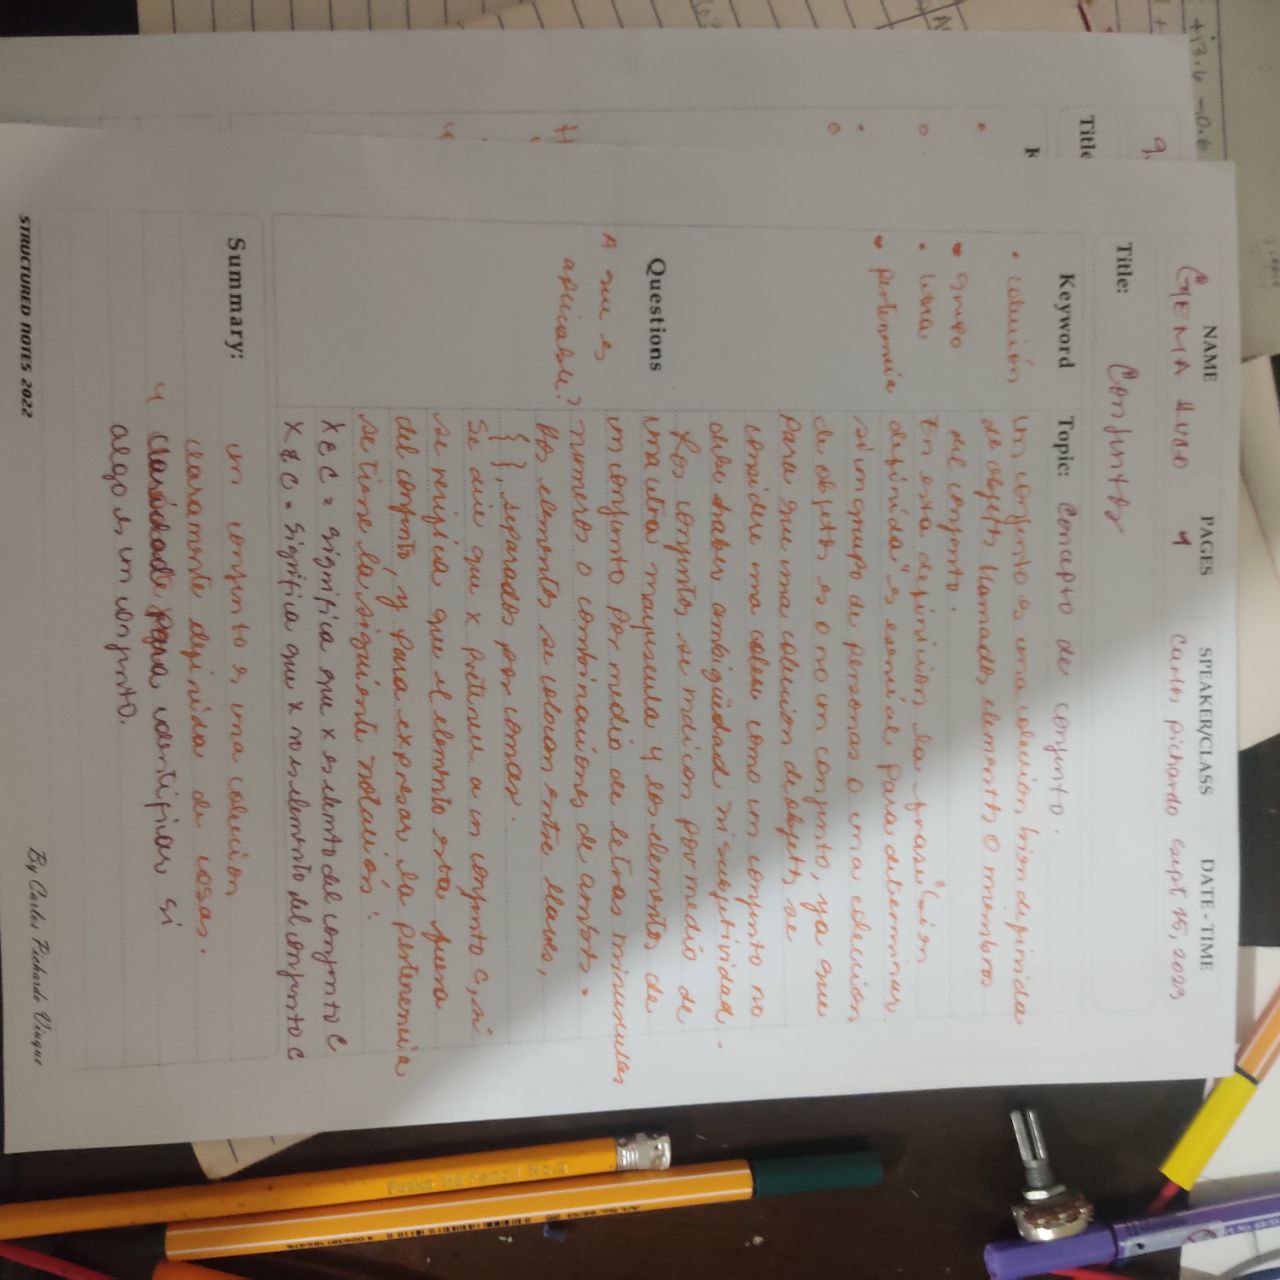 NAME PAGES SPEAKER/CLASS DATE - TIME
GEMA 4 Carlos pichardo sept 15, 2023
Title: Conjuntos
Keyword Topic: Concepto de conjunto.
• colección
• grupo
• 
• pertenencia
Un conjunto es una colección bien definida
de objetos llamados elementos o miembros
del conjunto.
En esta definicion la frase "bien
definida" es esencial para determinar
si un grupo de personas o una coleccion
de objetos es o no un conjunto, ya que
para que una coleccion de objetos se
considere como un conjunto no
debe haber ambigüedad ni subjetividad.
Los conjuntos se indican por medio de
una letra mayuscula y los elementos de
un conjunto por medio de letras minusculas
numeros o combinaciones de ambos.
Los elementos se colocan entre llaves,
{ }, separados por comas.
Se dice que x pertenece a un conjunto C, si
se verifica que el elemento esta
del conjunto, y para expresar la pertenencia
se tiene la siguiente notación:
x ∈ C = significa que x es elemento del conjunto C
x ∉ C = significa que x no es elemento del conjunto C
Questions
A que es
aplicable?
Summary:
un conjunto es una colección
claramente definida de cosas.
y para identificar si
algo es un conjunto.
STRUCTURED NOTES 2022 By Carlos Pichardo Viuque